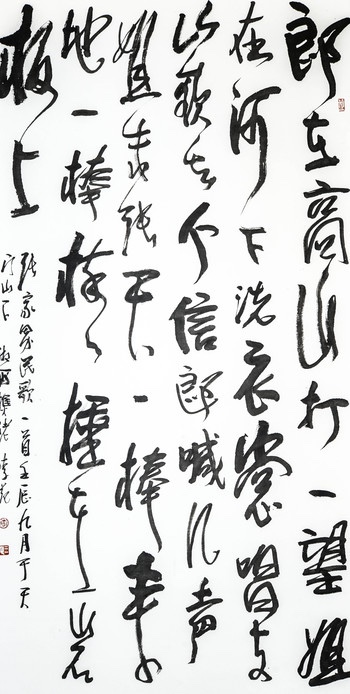 郎在高山打一望姐
在河下洗衣裳唱支
山歌丢个信郎喊几声
姐未张天一棒来
地一棒棒々捶在岩
板上
张家界民歌一首壬辰九月于天
门山下